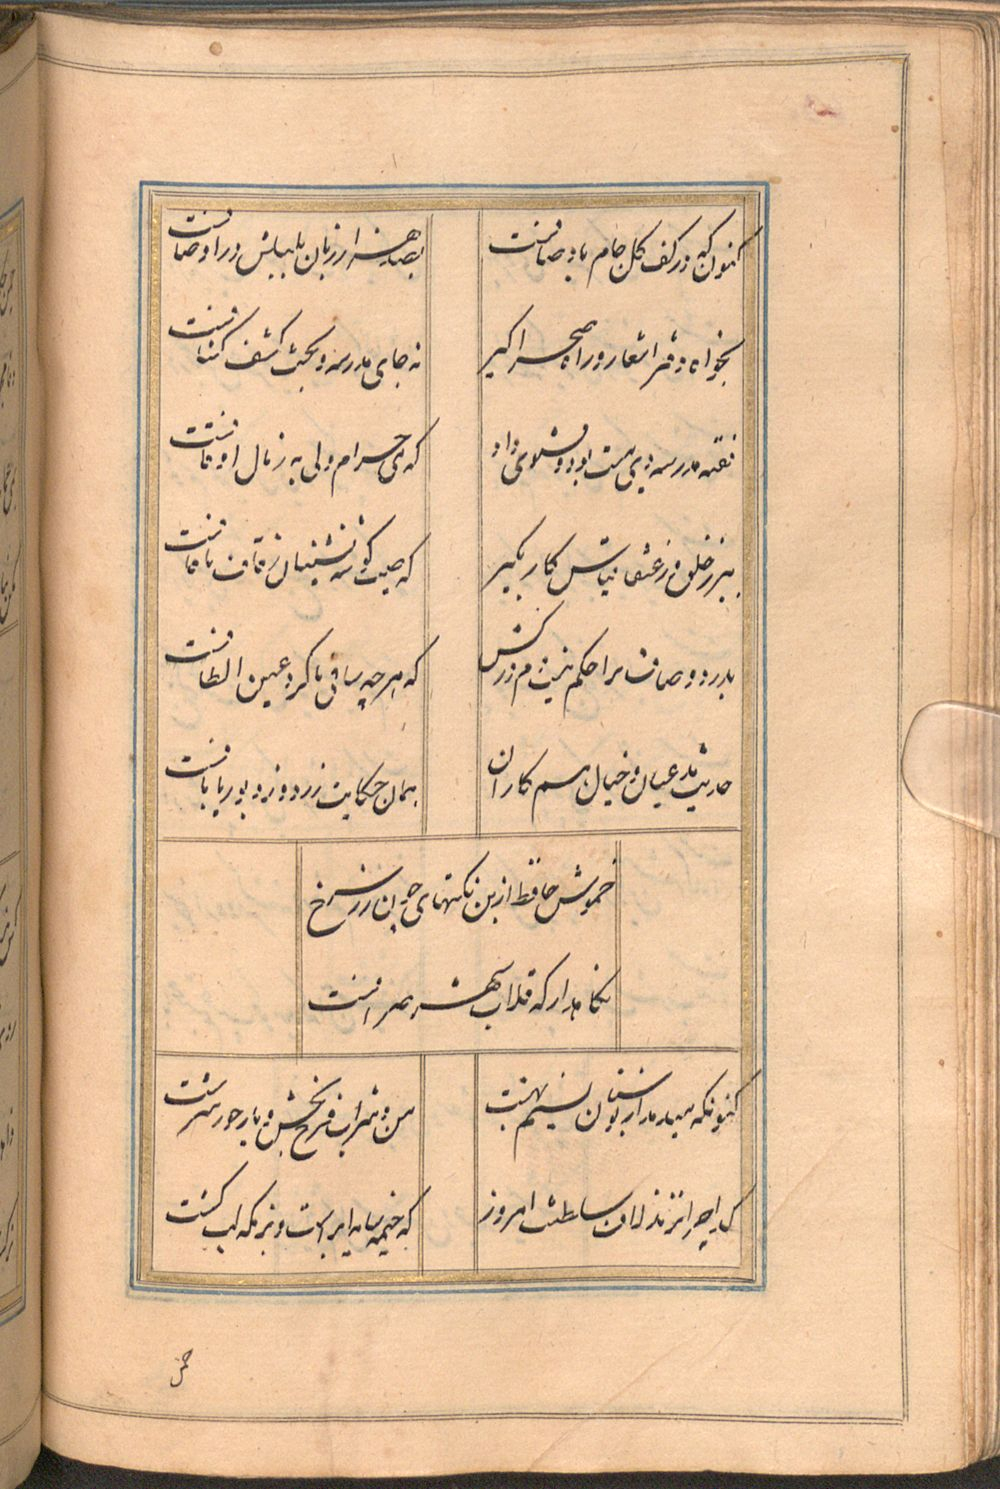 کنون که در کف گل جام باده صافست
بصد هزار زبان بلبلش در اوصافست
بخواه دفتر اشعار و راه صحرا گیر
نه جای مدرسه و بحث کشف کشافست
فقیه مدرسه دی مست بود و فتوی داد
که می حرام ولی به ز مال اوقافست
ببر ز خلق و ز عنقا قیاس کار بگیر
که صیت گوشه نشینان ز قاف تا قافست
بدرد و صاف ترا حکم نیست دم درکش
که هرچه ساقی ما کرد عین الطافست
حدیث مدعیان و خیال همکاران
همان حکایت زردوز و بوریابافست
خموش حافظ ازین نکتهای چون زر سرخ
نگاهدار که قلاب شهر صرافست
کنونکه میدمد از بوستان نسیم بهشت
من و شراب فرح بخش و یار حور سرشت
گدا چرا نزند لاف سلطنت امروز
که خیمه سایه ابر است و بزمگه لب کشت
چمن